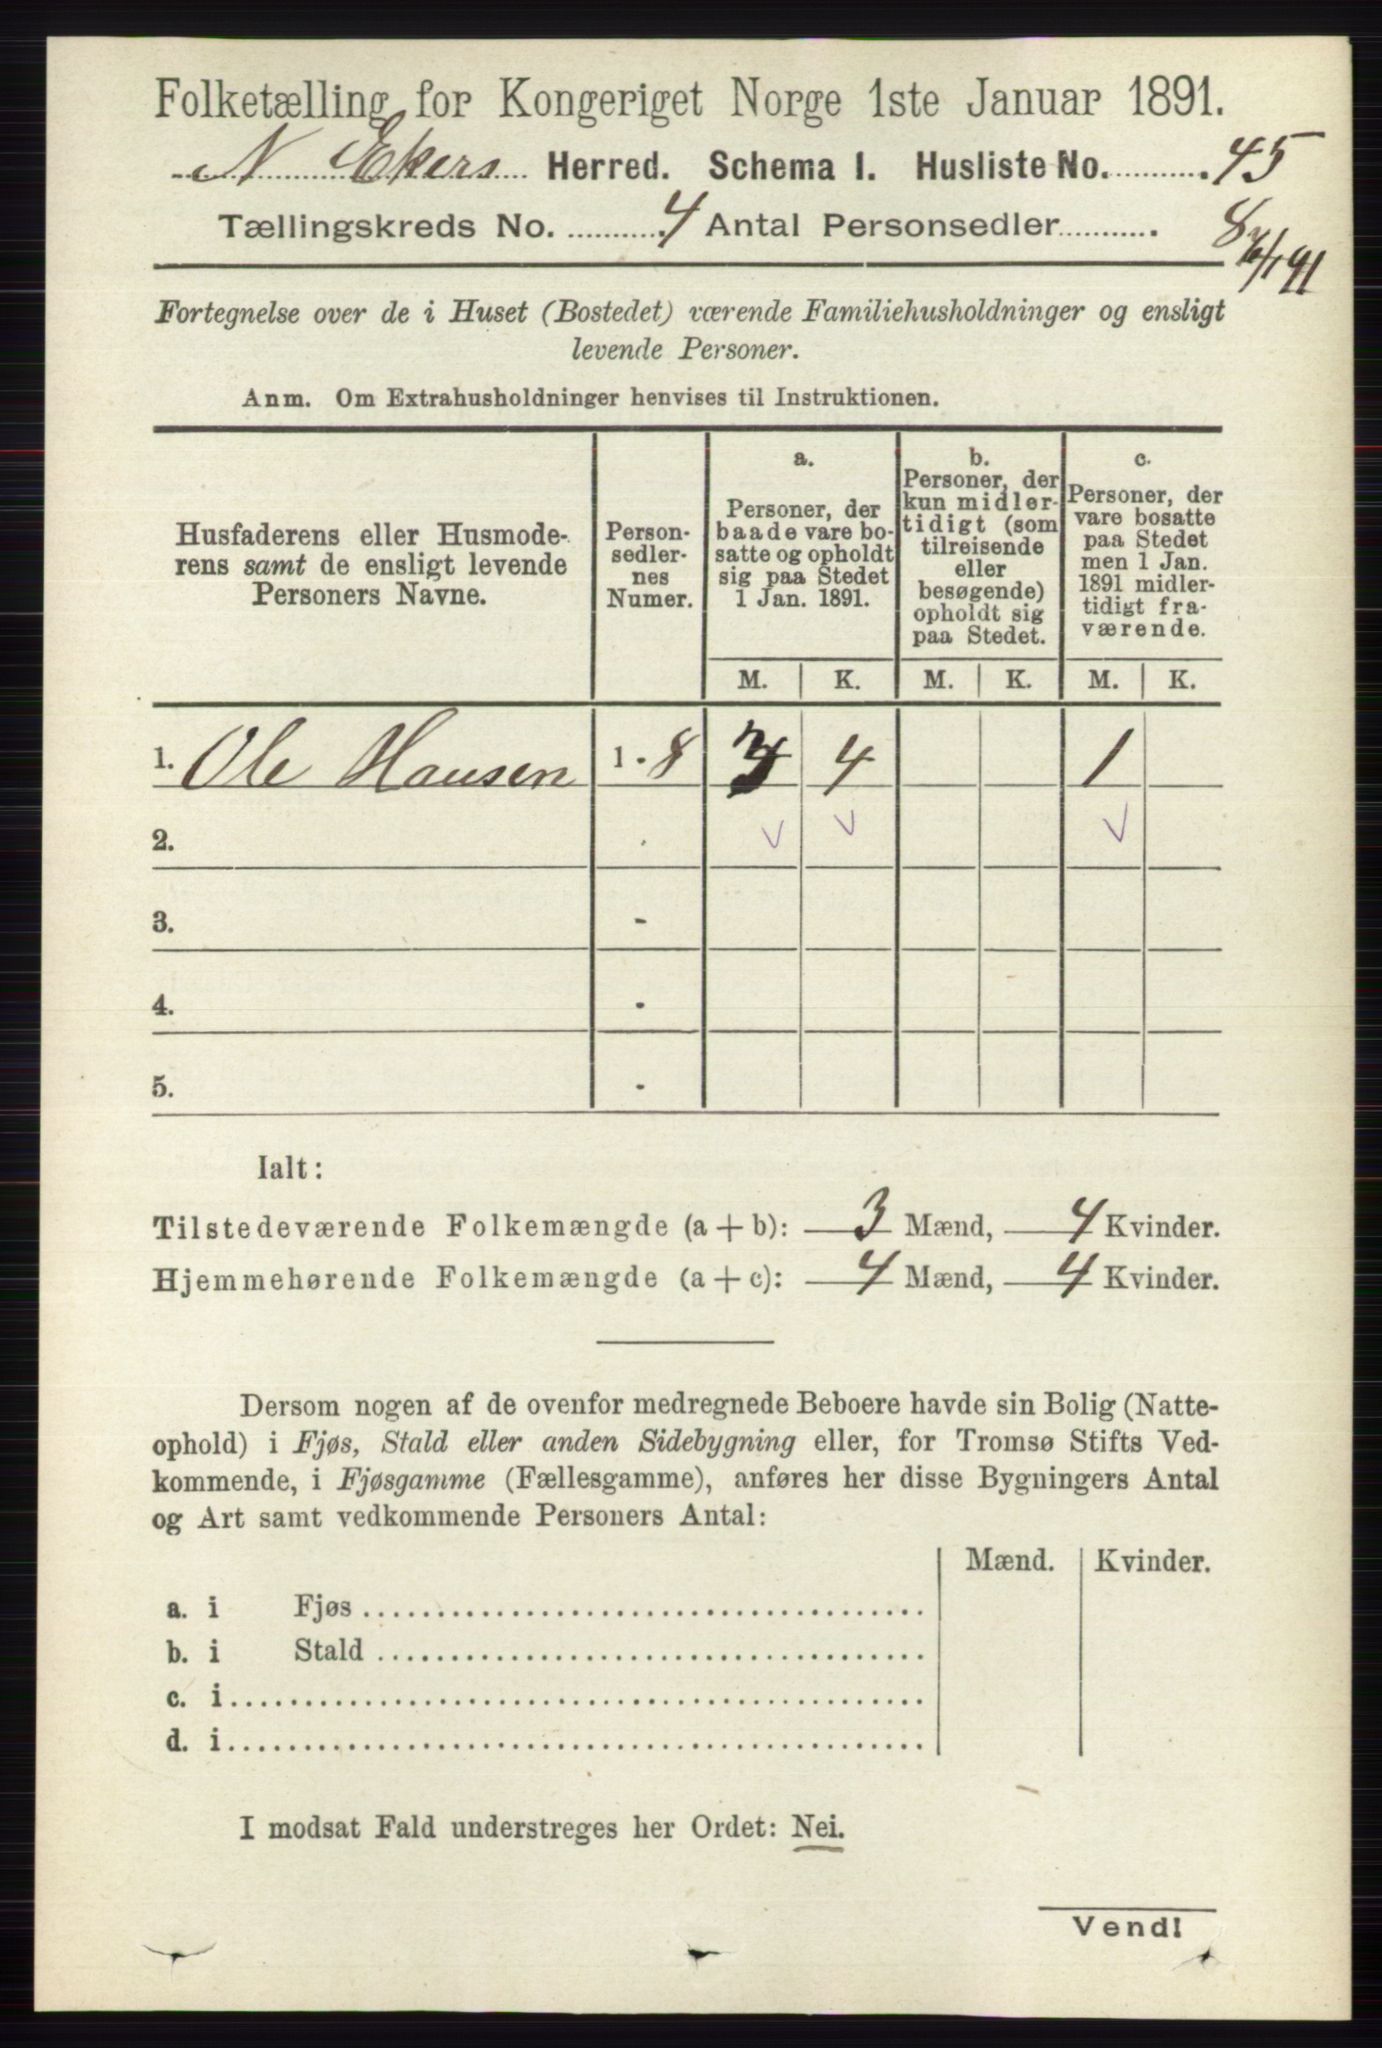 Folketælling for Kongeriget Norge 1ste Januar 1891.
N Ekers Herred. Schema I. Husliste No. 45
Tællingskreds No. 4 Antal Personsedler 8
Fortegnelse over de i Huset (Bostedet) værende Familiehusholdninger og ensligt
levende Personer.
Anm. Om Extrahusholdninger henvises til Instruktionen.
Husfaderens eller Husmode-
rens samt de ensligt levende
Personers Navne.
Person-
sedler-
nes
Numer.
a.
Personer, der
baade vare bo-
satte og opholdt
sig paa Stedet
1 Jan. 1891.
b.
Personer, der
kun midler-
tidigt (som
tilreisende
eller
besøgende)
opholdt sig
paa Stedet.
c.
Personer, der
vare bosatte
paa Stedet
men 1 Jan.
1891 midler-
tidigt fra-
værende.
M. K. M. K. M. K.
1. Ole Hansen 1 - 8 3 4 1
2.
3. -
4. -
5. -
Ialt:
Tilstedeværende Folkemængde (a + b): 3 Mænd, 4 Kvinder.
Hjemmehørende Folkemængde (a + c): 4 Mænd, 4 Kvinder.
Dersom nogen af de ovenfor medregnede Beboere havde sin Bolig (Natte-
ophold) i Fjøs, Stald eller anden Sidebygning eller, for Tromsø Stifts Ved-
kommende, i Fjøsgamme (Fællesgamme), anføres her disse Bygningers Antal
og Art samt vedkommende Personers Antal:
Mænd. Kvinder.
a. i Fjøs
b. i Stald
c. i
d. i
I modsat Fald understreges her Ordet: Nei.
Vend!